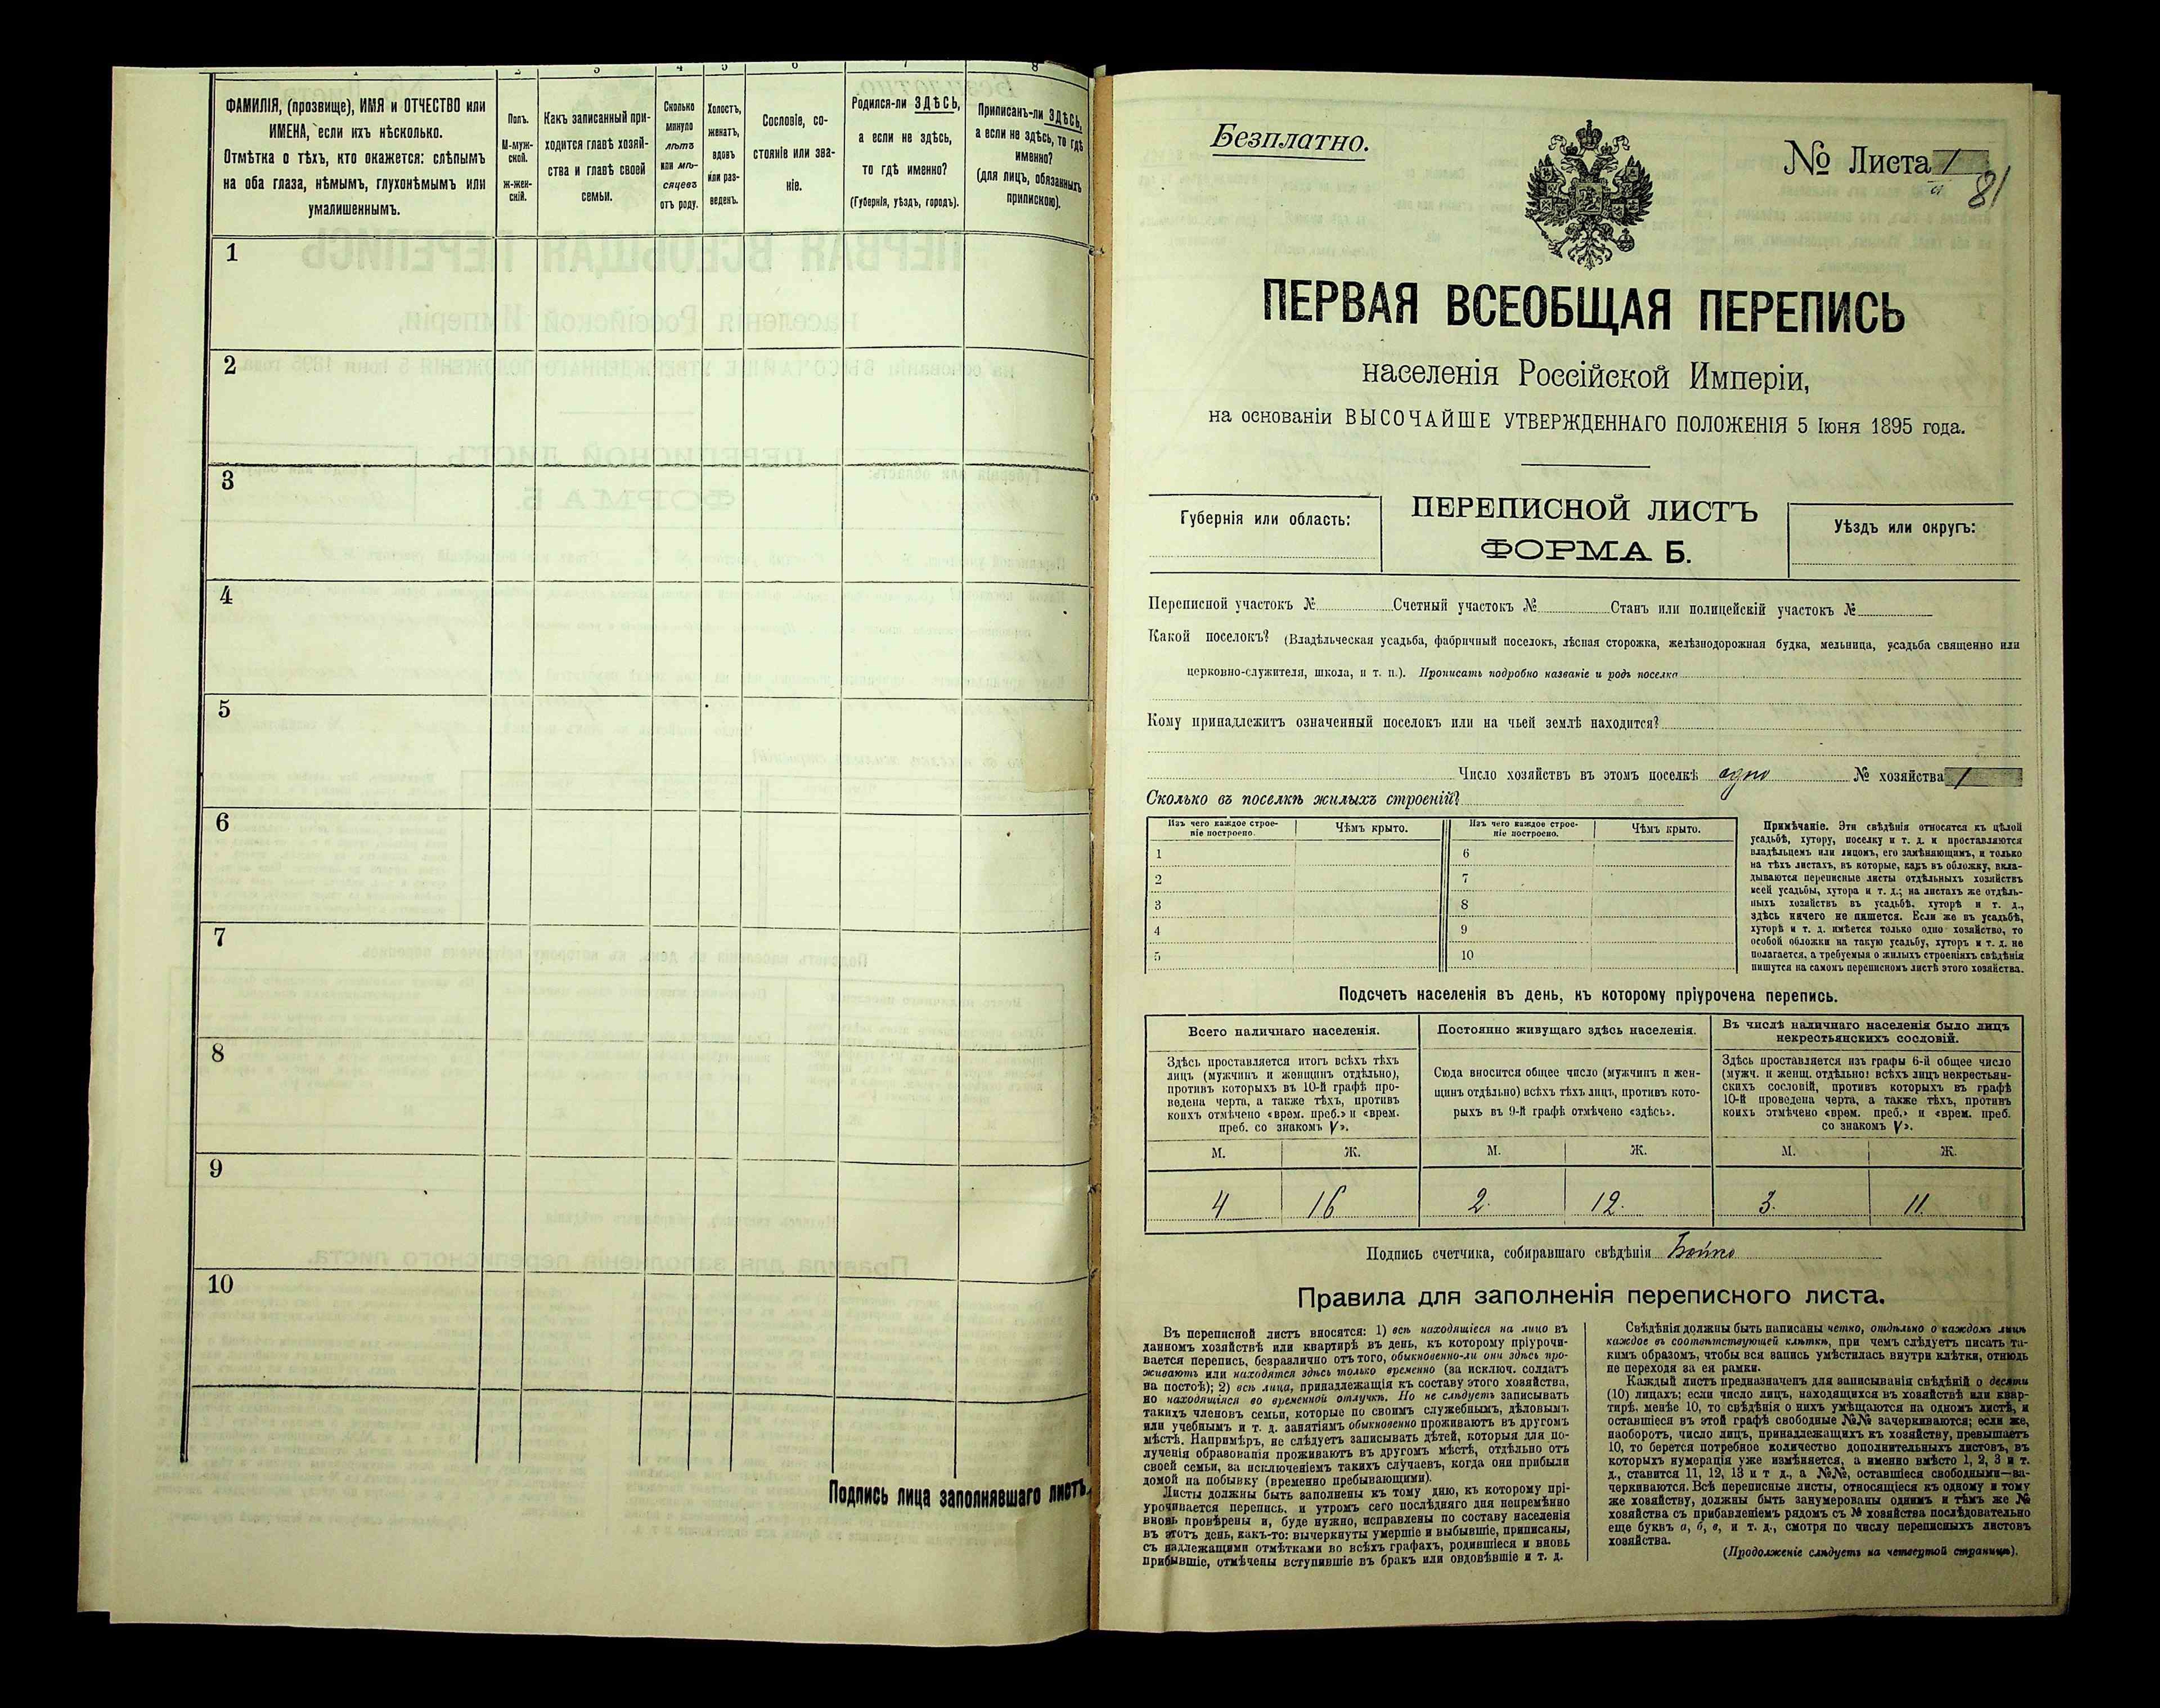 1 2 3 4 5 6 7 8
ФАМИЛІЯ, (прозвище), ИМЯ и ОТЧЕСТВО или
ИМЕНА, если ихъ нѣсколько.
Отмѣтка о тѣхъ, кто окажется: слѣпымъ
на оба глаза, нѣмымъ, глухонѣмымъ или
умалишеннымъ.
Полъ.
М-муж-
ской.
ж-жен-
скій.
Какъ записанный при-
ходится главѣ хозяй-
ства и главѣ своей
семьи.
Сколько
минуло
лѣтъ
или мѣ-
сяцевъ
отъ роду.
Холостъ,
женатъ,
вдовъ
или раз-
веденъ.
Сословіе, со-
стояніе или зва-
ніе.
Родился-ли ЗДѢСЬ,
а если не здѣсь,
то гдѣ именно?
(Губернія, уѣздъ, городъ).
Приписанъ-ли ЗДѢСЬ,
а если не здѣсь, то гдѣ
именно?
(для лицъ, обязанныхъ
припискою).
1
2
3
4
5
6
7
8
9
10
Подпись лица заполнявшаго листъ
Безплатно.
№ Листа 1
а
81
ПЕРВАЯ ВСЕОБЩАЯ ПЕРЕПИСЬ
населенія Россійской Имперіи,
на основаніи ВЫСОЧАЙШЕ УТВЕРЖДЕННАГО ПОЛОЖЕНІЯ 5 Іюня 1895 года.
Губернія или область:
ПЕРЕПИСНОЙ ЛИСТЪ
ФОРМА Б.
Уѣздъ или округъ:
Переписной участокъ № Счетный участокъ № Станъ или полицейскій участокъ №
Какой поселокъ? (Владѣльческая усадьба, фабричный поселокъ, лѣсная сторожка, желѣзнодорожная будка, мельница, усадьба священно или
церковно-служителя, школа, и т. п.). Прописать подробно названіе и родъ поселка
Кому принадлежитъ означенный поселокъ или на чьей землѣ находится?
Число хозяйствъ въ этомъ поселкѣ одно № хозяйства 1
Сколько въ поселкѣ жилыхъ строеній?
Изъ чего каждое строе-
ніе построено.
Чѣмъ крыто.
Изъ чего каждое строе-
ніе построено.
Чѣмъ крыто.
1 6
2 7
3 8
4 9
5 10
Примѣчаніе. Эти свѣдѣнія относятся къ цѣлой
усадьбѣ, хутору, поселку и т. д. и проставляются
владѣльцемъ или лицомъ, его замѣняющимъ, и только
на тѣхъ листахъ, въ которые, какъ въ обложку, вкла-
дываются переписные листы отдѣльныхъ хозяйствъ
всей усадьбы, хутора и т. д.; на листахъ же отдѣль-
ныхъ хозяйствъ въ усадьбѣ, хуторѣ и т. д.,
здѣсь ничего не пишется. Если же въ усадьбѣ,
хуторѣ и т. д. имѣется только одно хозяйство, то
особой обложки на такую усадьбу, хуторъ и т. д. не
полагается, а требуемыя о жилыхъ строеніяхъ свѣдѣнія
пишутся на самомъ переписномъ листѣ этого хозяйства.
Подсчетъ населенія въ день, къ которому пріурочена перепись.
Всего наличнаго населенія.
Здѣсь проставляется итогъ всѣхъ тѣхъ
лицъ (мужчинъ и женщинъ отдѣльно),
противъ которыхъ въ 10-й графѣ про-
ведена черта, а также тѣхъ, противъ
коихъ отмѣчено «врем. преб.» и «врем.
преб. со знакомъ V».
Постоянно живущаго здѣсь населенія.
Сюда вносится общее число (мужчинъ и жен-
щинъ отдѣльно) всѣхъ тѣхъ лицъ, противъ кото-
рыхъ въ 9-й графѣ отмѣчено «здѣсь».
Въ числѣ наличнаго населенія было лицъ
некрестьянскихъ сословій.
Здѣсь проставляется изъ графы 6-й общее число
(мужч. и женщ. отдѣльно) всѣхъ лицъ некрестьян-
скихъ сословій, противъ которыхъ въ графѣ
10-й проведена черта, а также тѣхъ, противъ
коихъ отмѣчено «врем. преб.» и «врем. преб.
со знакомъ V».
М. Ж. М. Ж. М. Ж.
4 16 2. 12. 3. 11.
Подпись счетчика, собиравшаго свѣдѣнія Бойко
Правила для заполненія переписного листа.
Въ переписной листъ вносятся: 1) всѣ находящіеся на лицо въ
данномъ хозяйствѣ или квартирѣ въ день, къ которому пріурочи-
вается перепись, безразлично отъ того, обыкновенно-ли они здѣсь про-
живаютъ или находятся здѣсь только временно (за исключ. солдатъ
на постоѣ); 2) всѣ лица, принадлежащія къ составу этого хозяйства,
но находящіяся во временной отлучкѣ. Но не слѣдуетъ записывать
такихъ членовъ семьи, которые по своимъ служебнымъ, дѣловымъ
или учебнымъ и т. д. занятіямъ обыкновенно проживаютъ въ другомъ
мѣстѣ. Напримѣръ, не слѣдуетъ записывать дѣтей, которыя для по-
лученія образованія проживаютъ въ другомъ мѣстѣ, отдѣльно отъ
своей семьи, за исключеніемъ такихъ случаевъ, когда они прибыли
домой на побывку (временно пребывающими).
Листы должны быть заполнены къ тому дню, къ которому прі-
урочивается перепись, и утромъ сего послѣдняго дня непремѣнно
вновь провѣрены и, буде нужно, исправлены по составу населенія
въ этотъ день, какъ-то: вычеркнуты умершіе и выбывшіе, приписаны,
съ надлежащими отмѣтками во всѣхъ графахъ, родившіеся и вновь
прибывшіе, отмѣчены вступившіе въ бракъ или овдовѣвшіе и т. д.
Свѣдѣнія должны быть написаны четко, отдѣльно о каждомъ лицѣ
каждое въ соотвѣтствующей клѣткѣ, при чемъ слѣдуетъ писать та-
кимъ образомъ, чтобы вся запись умѣстилась внутри клѣтки, отнюдь
не переходя за ея рамки.
Каждый листъ предназначенъ для записыванія свѣдѣній о десяти
(10) лицахъ; если число лицъ, находящихся въ хозяйствѣ или квар-
тирѣ, менѣе 10, то свѣдѣнія о нихъ умѣщаются на одномъ листѣ, и
оставшіеся въ этой графѣ свободные №№ зачеркиваются; если же,
наоборотъ, число лицъ, принадлежащихъ къ хозяйству, превышаетъ
10, то берется потребное количество дополнительныхъ листовъ, въ
которыхъ нумерація уже измѣняется, а именно вмѣсто 1, 2, 3 и т.
д., ставится 11, 12, 13 и т д., а №№, оставшіеся свободными—за-
черкиваются. Всѣ переписные листы, относящіеся къ одному и тому
же хозяйству, должны быть занумерованы однимъ и тѣмъ же №
хозяйства съ прибавленіемъ рядомъ съ № хозяйства послѣдовательно
еще буквъ а, б, в, и т. д., смотря по числу переписныхъ листовъ
хозяйства.
(Продолженіе слѣдуетъ на четвертой страницѣ).